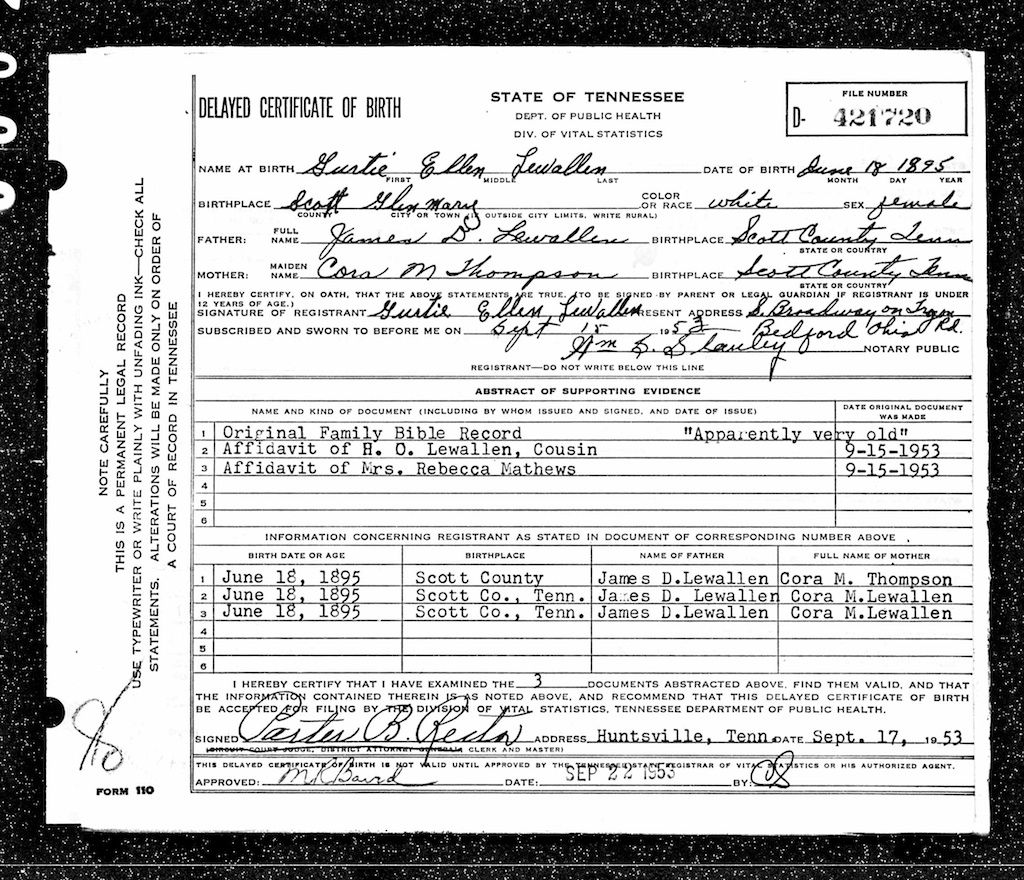 DELAYED CERTIFICATE OF BIRTH
STATE OF TENNESSEE
DEPT. OF PUBLIC HEALTH
DIV. OF VITAL STATISTICS
FILE NUMBER
D- 421720
NAME AT BIRTH Gurtie Ellen Lewallen DATE OF BIRTH June 18 1895
FIRST MIDDLE LAST MONTH DAY YEAR
BIRTHPLACE Scott Glenmary COLOR OR RACE white SEX female
COUNTY CITY OR TOWN (IF OUTSIDE CITY LIMITS, WRITE RURAL)
FATHER: FULL NAME James D. Lewallen BIRTHPLACE Scott County Tenn
STATE OR COUNTRY
MOTHER: MAIDEN NAME Cora M Thompson BIRTHPLACE Scott County Tenn
STATE OR COUNTRY
I HEREBY CERTIFY, ON OATH, THAT THE ABOVE STATEMENTS ARE TRUE. (TO BE SIGNED BY PARENT OR LEGAL GUARDIAN IF REGISTRANT IS UNDER
12 YEARS OF AGE.)
SIGNATURE OF REGISTRANT Gurtie Ellen Lewallen PRESENT ADDRESS S. Broadway on Rd.
SUBSCRIBED AND SWORN TO BEFORE ME ON Sept 15 1953 Bedford Ohio
Wm Stanley NOTARY PUBLIC
REGISTRANT—DO NOT WRITE BELOW THIS LINE
ABSTRACT OF SUPPORTING EVIDENCE
NAME AND KIND OF DOCUMENT (INCLUDING BY WHOM ISSUED AND SIGNED, AND DATE OF ISSUE) DATE ORIGINAL DOCUMENT WAS MADE
1 Original Family Bible Record "Apparently very old"
2 Affidavit of H. O. Lewallen, Cousin 9-15-1953
3 Affidavit of Mrs. Rebecca Mathews 9-15-1953
4
5
6
INFORMATION CONCERNING REGISTRANT AS STATED IN DOCUMENT OF CORRESPONDING NUMBER ABOVE
BIRTH DATE OR AGE BIRTHPLACE NAME OF FATHER FULL NAME OF MOTHER
1 June 18, 1895 Scott County James D.Lewallen Cora M. Thompson
2 June 18, 1895 Scott Co., Tenn. James D. Lewallen Cora M.Lewallen
3 June 18, 1895 Scott Co., Tenn. James D.Lewallen Cora M.Lewallen
4
5
6
I HEREBY CERTIFY THAT I HAVE EXAMINED THE 3 DOCUMENTS ABSTRACTED ABOVE, FIND THEM VALID, AND THAT
THE INFORMATION CONTAINED THEREIN IS AS NOTED ABOVE, AND RECOMMEND THAT THIS DELAYED CERTIFICATE OF BIRTH
BE ACCEPTED FOR FILING BY THE DIVISION OF VITAL STATISTICS, TENNESSEE DEPARTMENT OF PUBLIC HEALTH.
SIGNED B. Rector ADDRESS Huntsville, Tenn. DATE Sept. 17, 1953
(CIRCUIT COURT JUDGE, DISTRICT ATTORNEY GENERAL, CLERK AND MASTER)
THIS DELAYED CERTIFICATE OF BIRTH IS NOT VALID UNTIL APPROVED BY THE TENNESSEE STATE REGISTRAR OF VITAL STATISTICS OR HIS AUTHORIZED AGENT.
APPROVED: DATE: SEP 22 1953 BY:
NOTE CAREFULLY
THIS IS A PERMANENT LEGAL RECORD
USE TYPEWRITER OR WRITE PLAINLY WITH UNFADING INK—CHECK ALL
STATEMENTS. ALTERATIONS WILL BE MADE ONLY ON ORDER OF
A COURT OF RECORD IN TENNESSEE
FORM 110